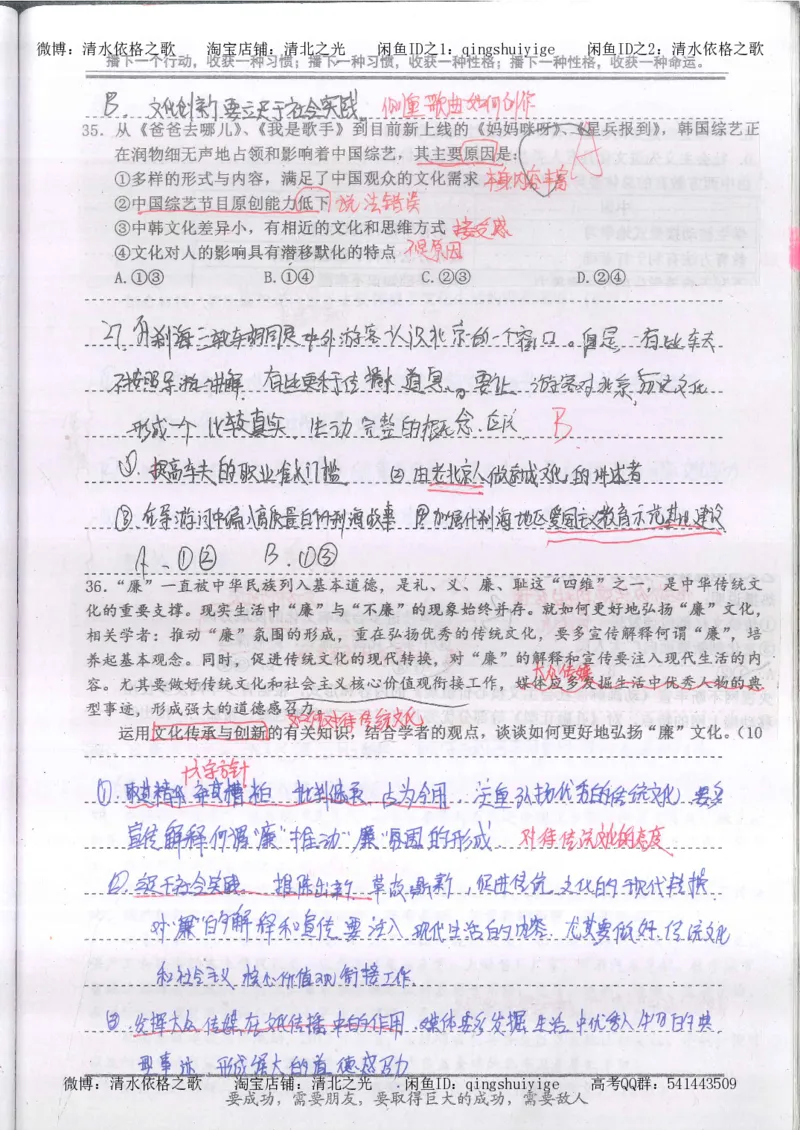 微博：清水依格之歌　淘宝店铺：清北之光　闲鱼ID之1：qingshuiyige　闲鱼ID之2：清水依格之歌
播下一个行动，收获一种习惯；播下一种习惯，收获一种性格；播下一种性格，收获一种命运。
B. 文化创新要立足于社会实践 侧重歌曲如何创作
35. 从《爸爸去哪儿》、《我是歌手》到目前新上线的《妈妈咪呀》、《星兵报到》，韩国综艺正
在润物细无声地占领和影响着中国综艺，其主要原因是： A
①多样的形式与内容，满足了中国观众的文化需求 本身内容丰富
②中国综艺节目原创能力低下 说法错误
③中韩文化差异小，有相近的文化和思维方式 接受度
④文化对人的影响具有潜移默化的特点 不是原因
A.①③ B.①④ C.②③ D.②④
27. 什刹海三轮车胡同是中外游客认识北京的一个窗口。但是有些车夫
不按照导游讲解，有些更行信 道息。要让 游客对北京历史文化
形成一个比较真实、生动完整的概念，应该 B
①提高车夫的职业准入门槛 ②由老北京人做京城文化的讲述者
③在导游词中编入高质量的什刹海故事 ④加强什刹海地区爱国主义教育示范基地建设
A.①② B.①③
36.“廉”一直被中华民族列入基本道德，是礼、义、廉、耻这“四维”之一，是中华传统文
化的重要支撑。现实生活中“廉”与“不廉”的现象始终并存。就如何更好地弘扬“廉”文化，
相关学者：推动“廉”氛围的形成，重在弘扬优秀的传统文化，要多宣传解释何谓“廉”，培
养起基本观念。同时，促进传统文化的现代转换，对“廉”的解释和宣传要注入现代生活的内
大众传媒
容。尤其要做好传统文化和社会主义核心价值观衔接工作，媒体应多发掘生活中优秀人物的典
型事迹，形成强大的道德感召力。 如何对待传统文化
运用文化传承与创新的有关知识，结合学者的观点，谈谈如何更好地弘扬“廉”文化。（10
十六字方针
①取其精华 弃其糟粕 批判继承 古为今用，注重弘扬优秀的传统文化 要多
宣传解释何谓“廉”推动“廉”氛围的形成 对待传统文化的态度
②立足于社会实践 推陈出新 革故鼎新，促进传统文化的现代转换
对“廉”的解释和宣传要注入现代生活的内容 尤其要做好传统文化
和社会主义核心价值观衔接工作
③发挥大众传媒在文化传播中的作用 媒体要多发掘生活中优秀人物的典
型事迹 形成强大的道德感召力
微博：清水依格之歌　淘宝店铺：清北之光　闲鱼ID：qingshuiyige　高考QQ群：541443509
要成功，需要朋友，要取得巨大的成功，需要敌人